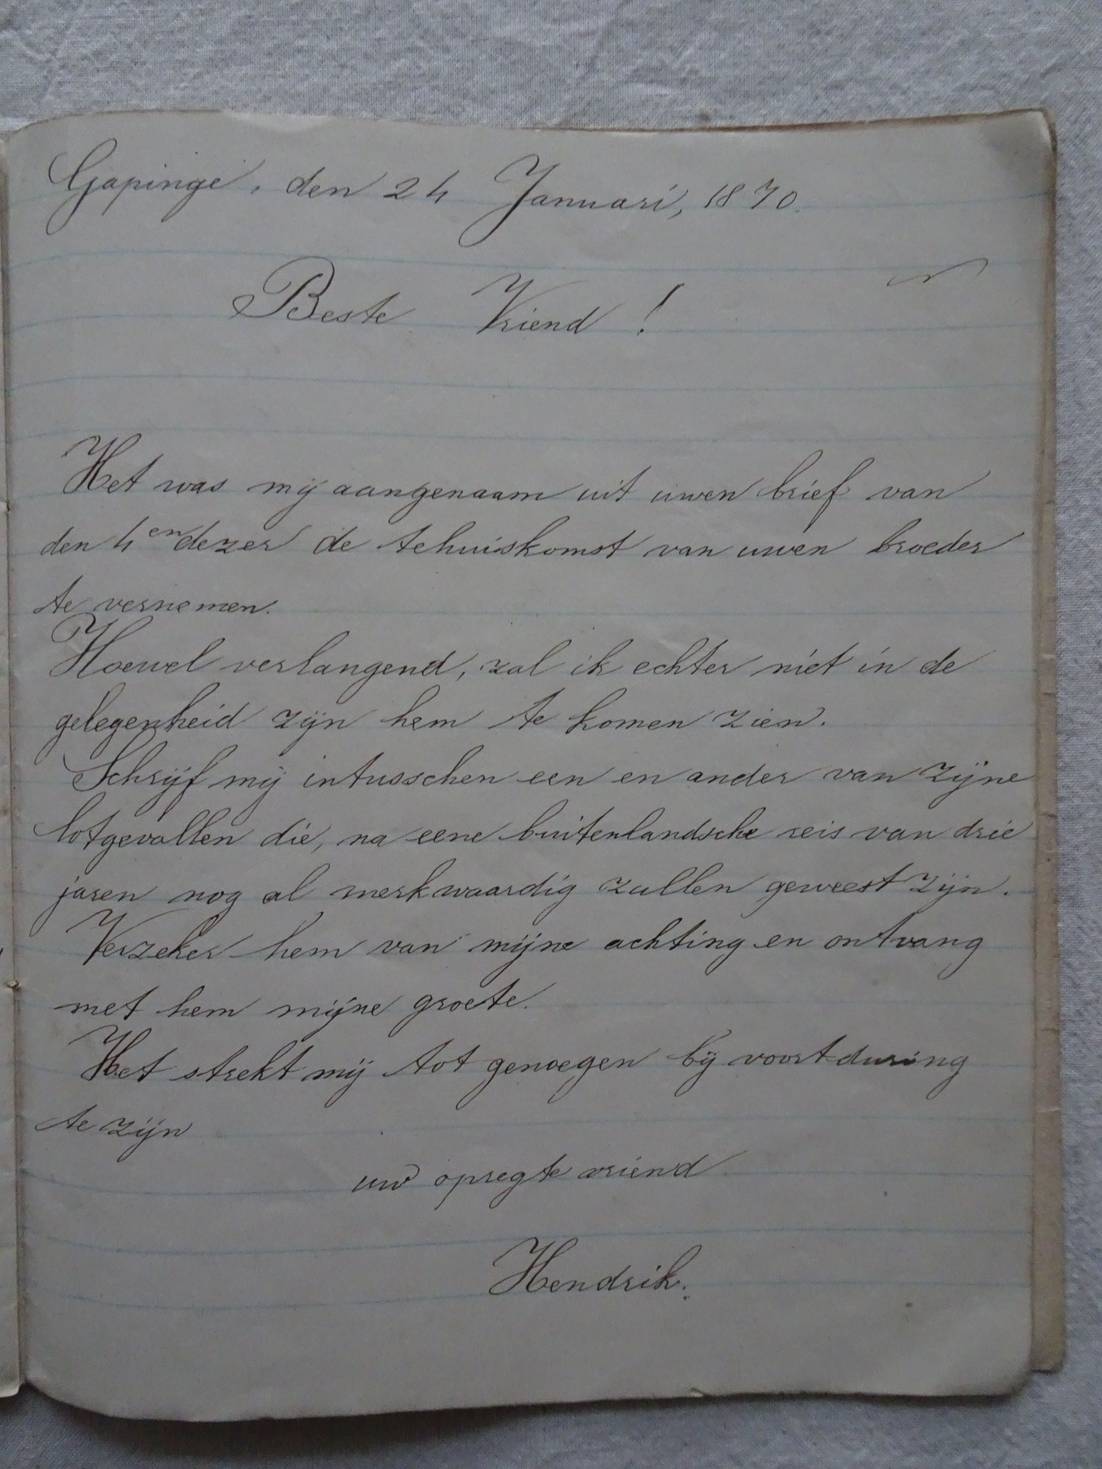 Gapinge, den 24 Januari, 1870.
Beste Vriend!
Het was mij aangenaam uit uwen brief van
den 4en dezer de tehuiskomst van uwen broeder
te vernemen.
Hoewel verlangend, zal ik echter niet in de
gelegenheid zijn hem te komen zien.
Schrijf mij intusschen een en ander van zijne
lotgevallen die, na eene buitenlandsche reis van drie
jaren nog al merkwaardig zullen geweest zijn.
Verzeker hem van mijne achting en ontvang
met hem mijne groete.
Het strekt mij tot genoegen bij voortduring
te zijn
uw opregte vriend
Hendrik.